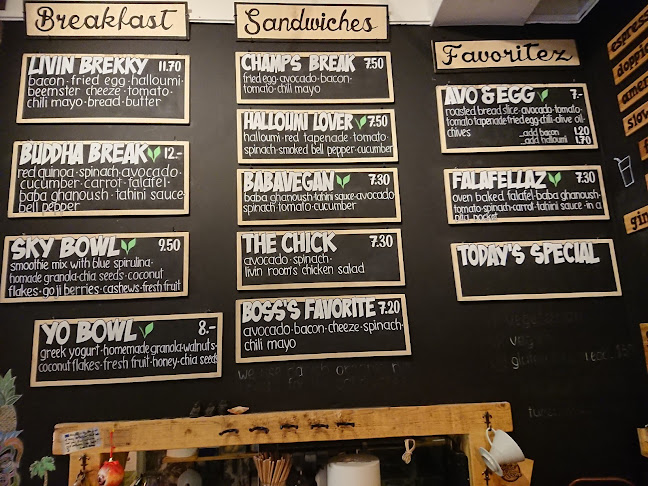 Breakfast
LIVIN BREKKY 11.70
bacon·fried egg·halloumi·
beemster cheeze·tomato·
chili mayo·bread·butter
BUDDHA BREAK 12.-
red quinoa·spinach·avocado·
cucumber·carrot·falafel·
baba ghanoush·tahini sauce·
bell pepper
SKY BOWL 9.50
smoothie mix with blue spirulina·
homade granola·chia seeds·coconut
flakes·goji berries·cashews·fresh fruit
YO BOWL 8.-
greek yogurt·homemade granola·walnuts·
coconut flakes·fresh fruit·honey·chia seeds
Sandwiches
CHAMPS BREAK 7.50
fried egg·avocado·bacon·
tomato·chili mayo
HALLOUMI LOVER 7.50
halloumi·red tapenade·tomato·
spinach·smoked bell pepper·cucumber
BABAVEGAN 7.30
baba ghanoush·tahini sauce·avocado
spinach·tomato·cucumber
THE CHICK 7.30
avocado·spinach·
livin room's chicken salad
BOSS'S FAVORITE 7.20
avocado·bacon·cheeze·spinach·
chili mayo
Favoritez
AVO & EGG 7.-
roasted bread slice·avocado·tomato·
tomato tapenade·fried egg·chili·olive oil·
chives
add bacon 1.20
add halloumi 1.70
FALAFELLAZ 7.30
oven baked falafel·baba ghanoush·
tomato·spinach·carrot·tahini sauce·in a
pita pocket
TODAY'S SPECIAL
espress
doppio
amer
slow
gin